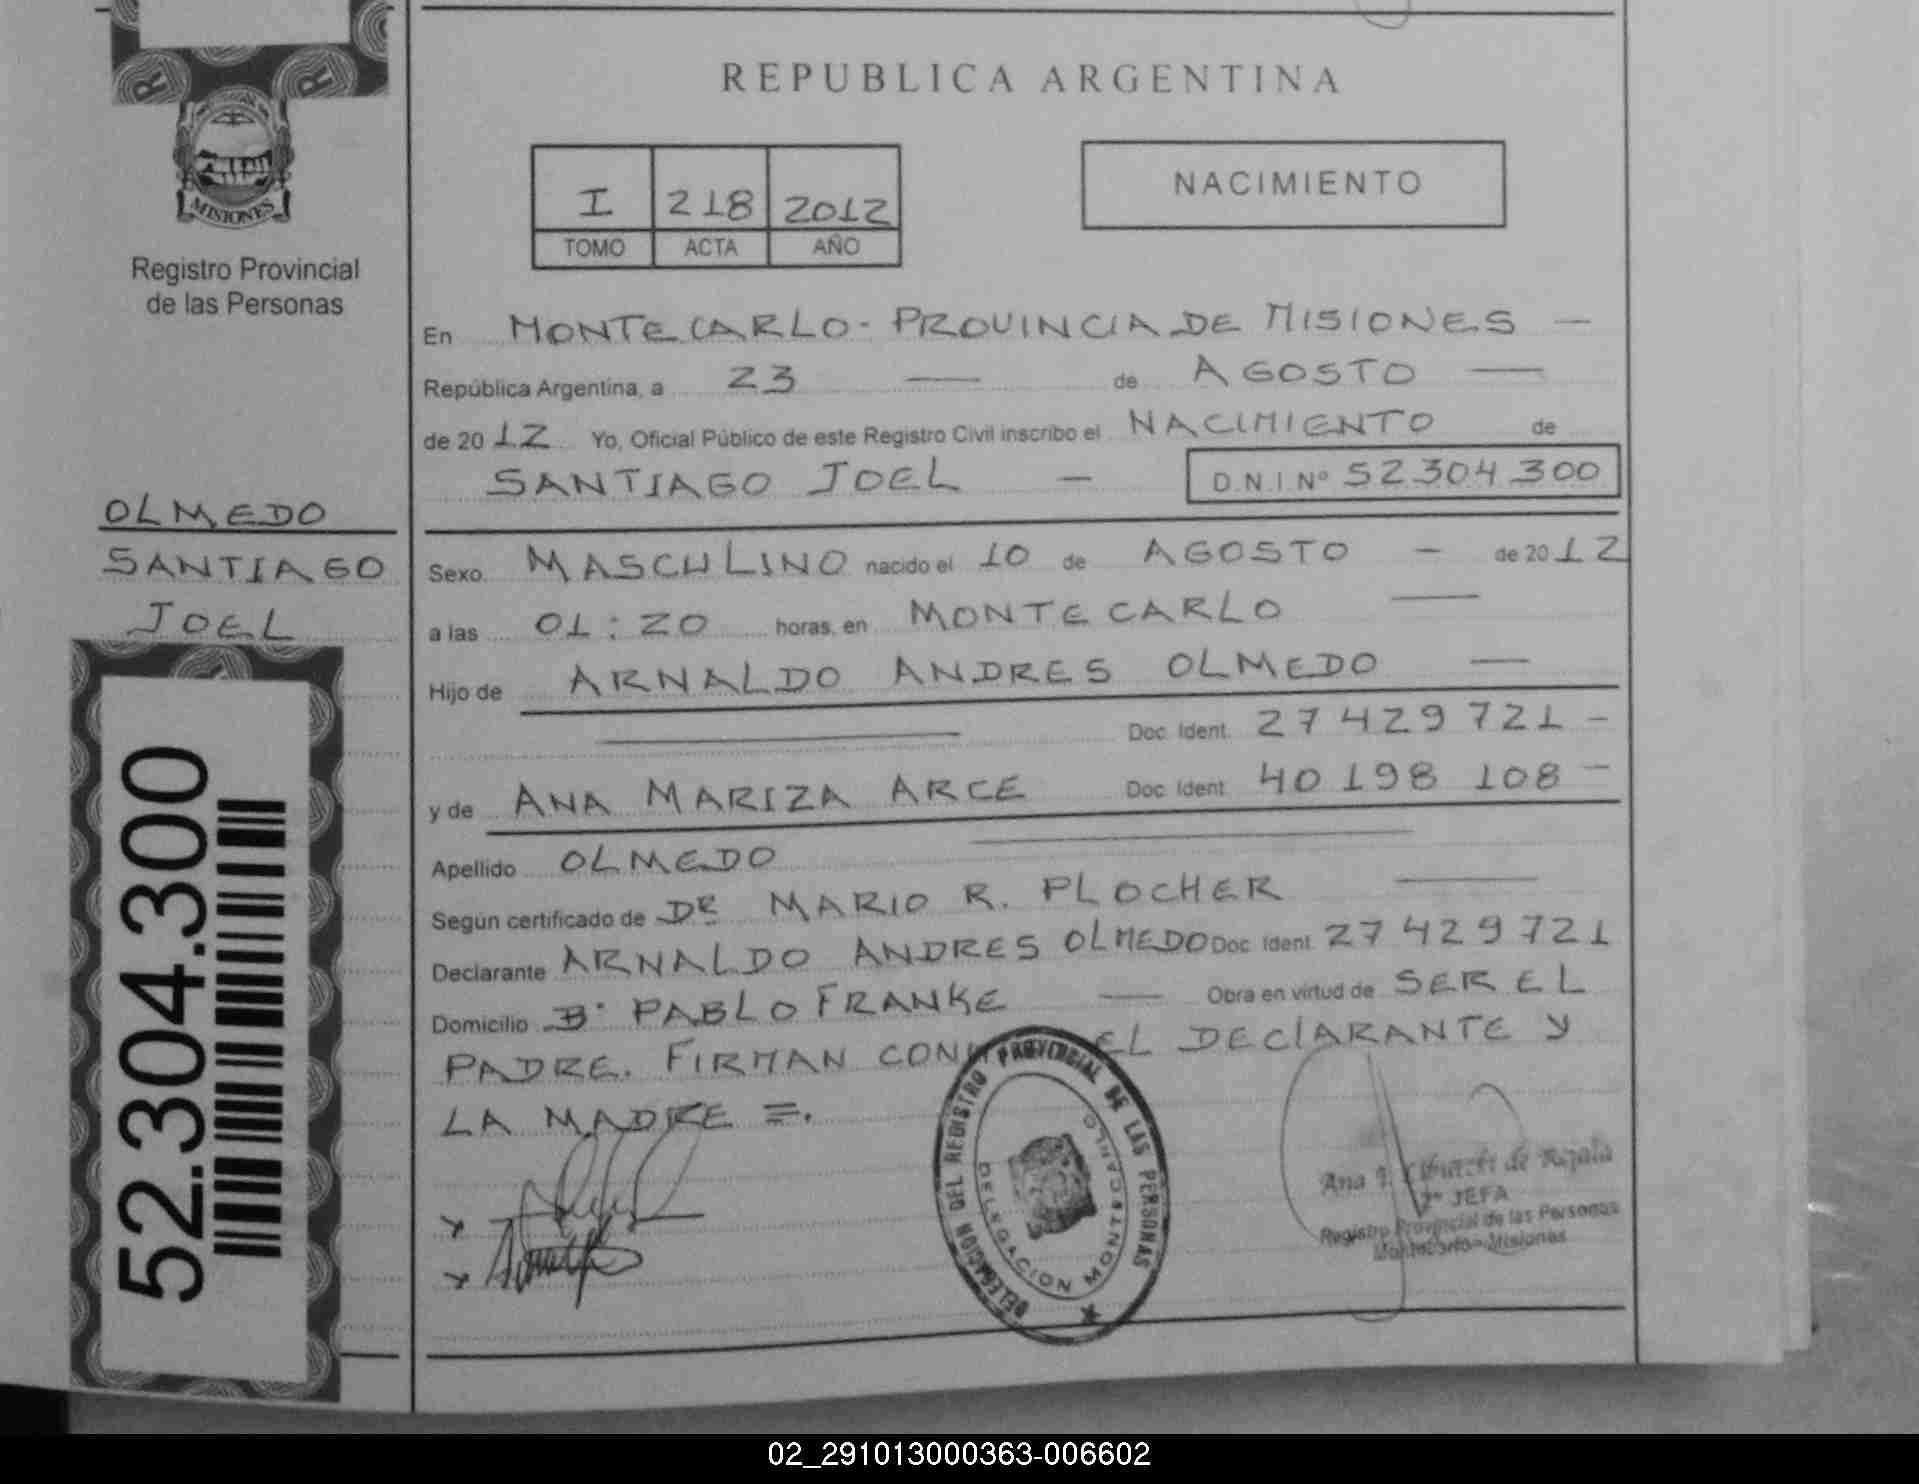 REPUBLICA ARGENTINA
MISIONES
Registro Provincial
de las Personas
I 218 2012
TOMO ACTA AÑO
NACIMIENTO
En MONTECARLO - PROVINCIA DE MISIONES —
República Argentina, a 23 — de AGOSTO —
de 2012 Yo, Oficial Público de este Registro Civil inscribo el NACIMIENTO de
SANTIAGO JOEL — D.N.I Nº 52.304.300
OLMEDO
SANTIAGO
JOEL
Sexo MASCULINO nacido el 10 de AGOSTO - de 2012
a las 01:20 horas, en MONTECARLO —
Hijo de ARNALDO ANDRES OLMEDO —
Doc. Ident. 27429721 -
y de ANA MARIZA ARCE Doc. Ident. 40198108 -
Apellido OLMEDO
Según certificado de DR MARIO R. PLOCHER
Declarante ARNALDO ANDRES OLMEDO Doc. Ident. 27429721
Domicilio Bº PABLO FRANKE — Obra en virtud de SER EL
PADRE. FIRMAN EL DECLARANTE Y
LA MADRE =.
52.304.300
DELEGACION DEL REGISTRO PROVINCIAL DE LAS PERSONAS
DELEGACION MONTECARLO
Ana de
2º JEFA
Registro Provincial de las Personas
Montecarlo - Misiones
02_291013000363-006602